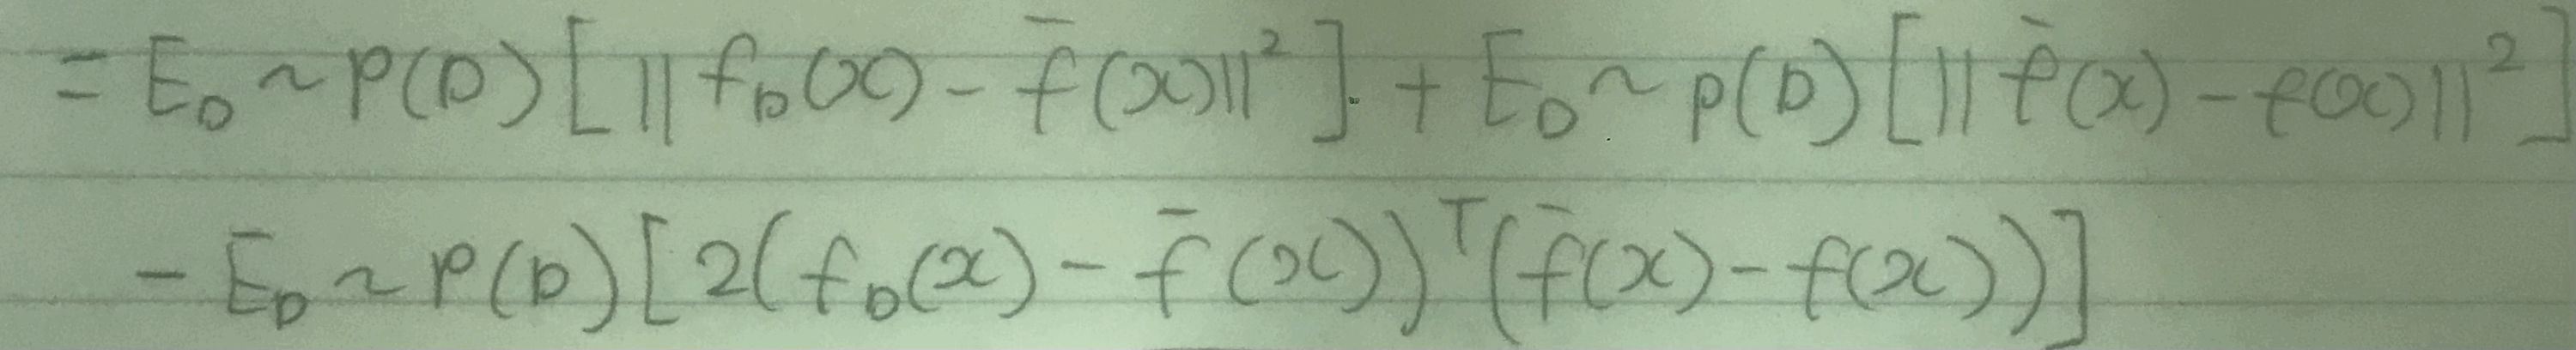 = E_D ~ p(D) [ || f_D(x) - f̄(x) ||² ] + E_D ~ p(D) [ || f̄(x) - f(x) ||² ]
- E_D ~ p(D) [ 2( f_D(x) - f̄(x) )ᵀ ( f̄(x) - f(x) ) ]